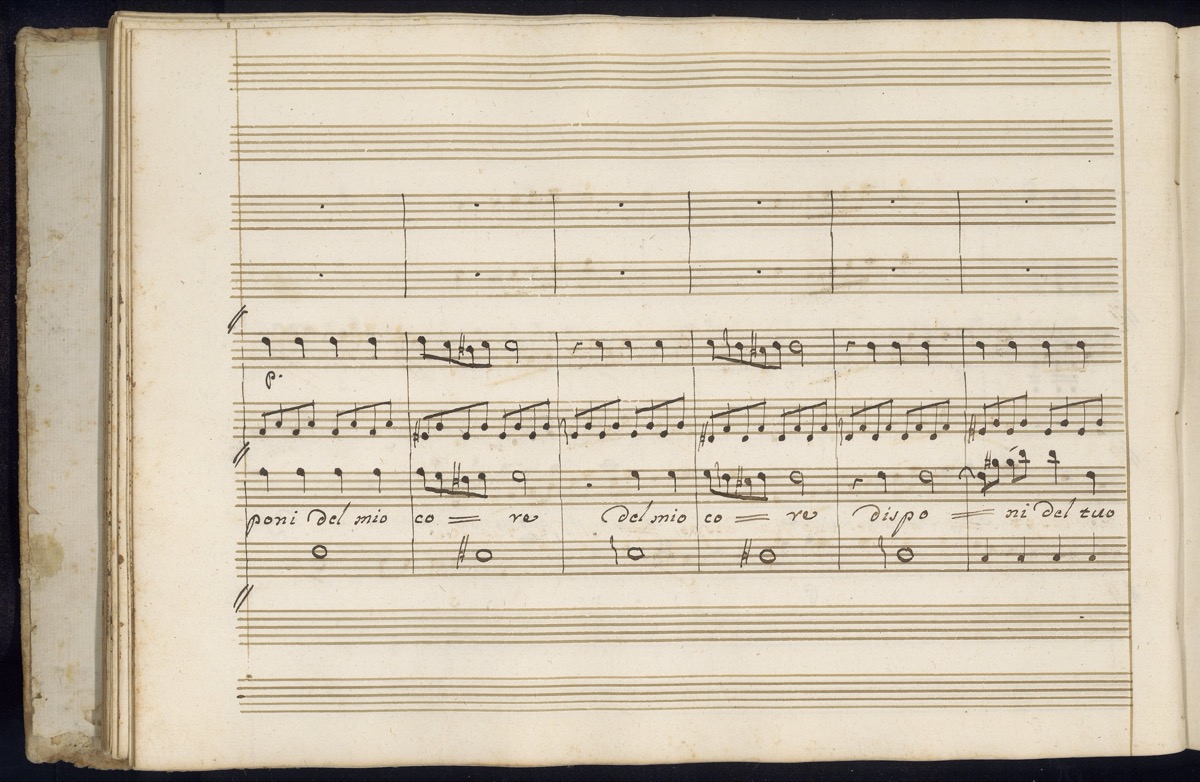 p.
poni del mio co = re del mio co = re dispo = ni del tuo